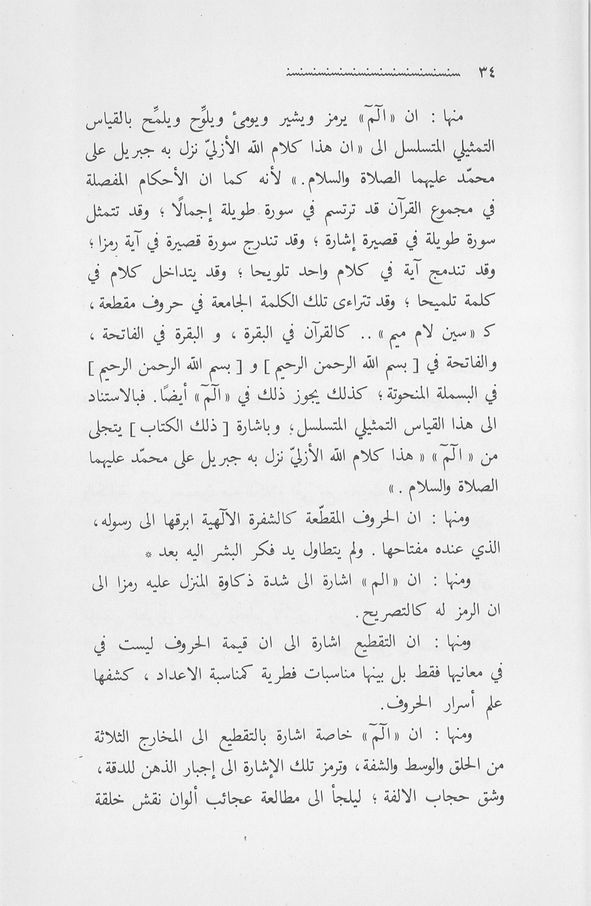 ٣٤
منها : ان «الٓمٓ» يرمز ويشير ويومئ ويلوِّح ويلمِّح بالقياس
التمثيلي المتسلسل الى «ان هذا كلام الله الأزليّ نزل به جبريل على
محمّد عليهما الصلاة والسلام.» لأنه كما ان الأحكام المفصلة
في مجموع القرآن قد ترتسم في سورة طويلة إجمالًا ؛ وقد تتمثل
سورة طويلة في قصيرة إشارة ؛ وقد تندرج سورة قصيرة في آية رمزا ؛
وقد تندمج آية في كلام واحد تلويحا ؛ وقد يتداخل كلام في
كلمة تلميحا ؛ وقد تتراءى تلك الكلمة الجامعة في حروف مقطعة ،
كـ «سين لام ميم» .. كالقرآن في البقرة ، و البقرة في الفاتحة ،
والفاتحة في [ بسم الله الرحمن الرحيم ] و [ بسم الله الرحمن الرحيم ]
في البسملة المنحوتة ؛ كذلك يجوز ذلك في «الٓمٓ» أيضًا. فبالاستناد
الى هذا القياس التمثيلي المتسلسل ؛ وباشارة [ ذلك الكتاب ] يتجلى
من « الٓمٓ» « هذا كلام الله الأزليّ نزل به جبريل على محمّد عليهما
الصلاة والسلام . »
ومنها : ان الحروف المقطّعة كالشفرة الآلهية ابرقها الى رسوله،
الذي عنده مفتاحها . ولم يتطاول يد فكر البشر اليه بعد *
ومنها : ان «الم» اشارة الى شدة ذكاوة المنزل عليه رمزا الى
ان الرمز له كالتصريح.
ومنها : ان التقطيع اشارة الى ان قيمة الحروف ليست في
في معانيها فقط بل بينها مناسبات فطرية كمناسبة الاعداد ، كشفها
علم أسرار الحروف.
ومنها : ان «الٓمٓ» خاصة اشارة بالتقطيع الى المخارج الثلاثة
من الحلق والوسط والشفة، وترمز تلك الإشارة الى إجبار الذهن للدقة،
وشق حجاب الالفة ؛ ليلجأ الى مطالعة عجائب ألوان نقش خلقة